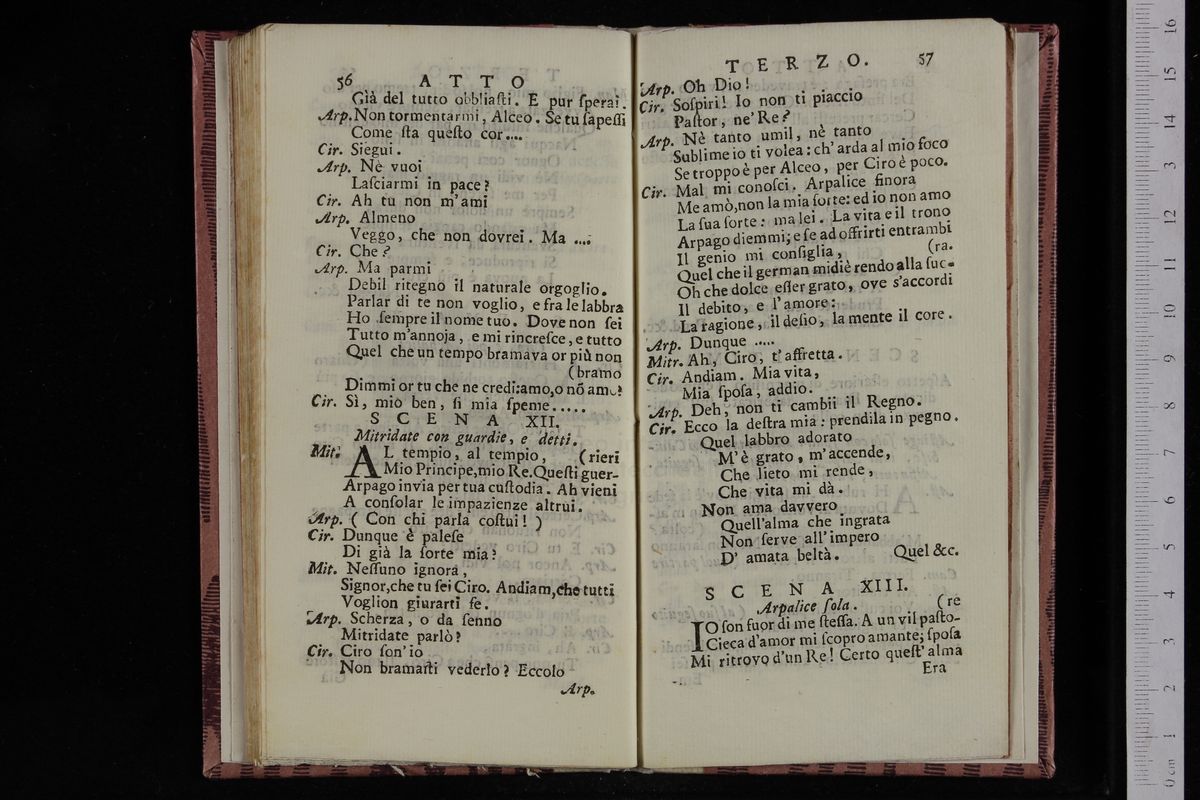 56 ATTO
Già del tutto obbliaſti. E pur ſperai.
Arp. Non tormentarmi, Alceo. Se tu ſapeſſi
Come ſta queſto cor....
Cir. Siegui.
Arp. Nè vuoi
Laſciarmi in pace?
Cir. Ah tu non m'ami
Arp. Almeno
Veggo, che non dovrei. Ma ....
Cir. Che?
Arp. Ma parmi
Debil ritegno il naturale orgoglio.
Parlar di te non voglio, e fra le labbra
Ho ſempre il nome tuo. Dove non ſei
Tutto m'annoja, e mi rincreſce, e tutto
Quel che un tempo bramava or più non
(bramo
Dimmi or tu che ne credi: amo, o nõ amo?
Cir. Sì, mio ben, ſi mia ſpeme.....
SCENA XII.
Mitridate con guardie, e detti.
Mit. AL tempio, al tempio, (rieri
Mio Principe, mio Re. Queſti guer-
Arpago invia per tua cuſtodia. Ah vieni
A conſolar le impazienze altrui.
Arp. ( Con chi parla coſtui! )
Cir. Dunque è paleſe
Di già la ſorte mia?
Mit. Neſſuno ignora,
Signor, che tu ſei Ciro. Andiam, che tutti
Voglion giurarti fe.
Arp. Scherza, o da ſenno
Mitridate parlò?
Cir. Ciro ſon' io
Non bramaſti vederlo? Eccolo
Arp.
TERZO. 57
Arp. Oh Dio!
Cir. Soſpiri! Io non ti piaccio
Paſtor, ne' Re?
Arp. Nè tanto umil, nè tanto
Sublime io ti volea: ch' arda al mio foco
Se troppo è per Alceo, per Ciro è poco.
Cir. Mal mi conoſci. Arpalice finora
Me amò, non la mia ſorte: ed io non amo
La ſua ſorte: ma lei. La vita e il trono
Arpago diemmi; e ſe ad offrirti entrambi
Il genio mi conſiglia, (ra.
Quel che il german midiè rendo alla ſuc-
Oh che dolce eſſer grato, ove s'accordi
Il debito, e l'amore:
La ragione, il deſio, la mente il core.
Arp. Dunque .....
Mitr. Ah, Ciro, t'affretta.
Cir. Andiam. Mia vita,
Mia ſpoſa, addio.
Arp. Deh, non ti cambii il Regno.
Cir. Ecco la deſtra mia: prendila in pegno.
Quel labbro adorato
M'è grato, m'accende,
Che lieto mi rende,
Che vita mi dà.
Non ama davvero
Quell'alma che ingrata
Non ſerve all'impero
D' amata beltà. Quel &c.
SCENA XIII.
Arpalice ſola. (re
IO ſon fuor di me ſteſſa. A un vil paſto-
Cieca d'amor mi ſcopro amante; ſpoſa
Mi ritrovo d'un Re! Certo queſt' alma
Era
0 cm 1 2 3 4 5 6 7 8 9 10 11 12 13 14 15 16